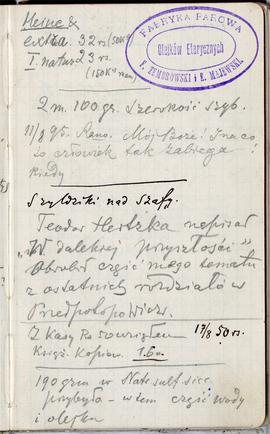 Heine &
extra 32 rs (50K°)
I. natur 23 rs.
(150K° nam)
FABRYKA PAROWA
Olejków Eterycznych
F. ZEMBROWSKI i E. MAJEWSKI.
2 m. 100 gr. Szerokość szyb.
11/8 95. Rano. Mój Boże! I na co
to człowiek tak zabiega!
Kiedy
Szyldziki nad szafy.
Teodor Hertzka napisał
"W dalekiej przyszłości"
Obrobił część mego tematu
z ostatnich rozdziałów
Przedpotopowicza.
Z Kasy Ro 17/8 50 rs.
Księż. Kopiow. 1.60
190 grm w Natr sulf sicc
przybyło – w tem część wody
i olejku